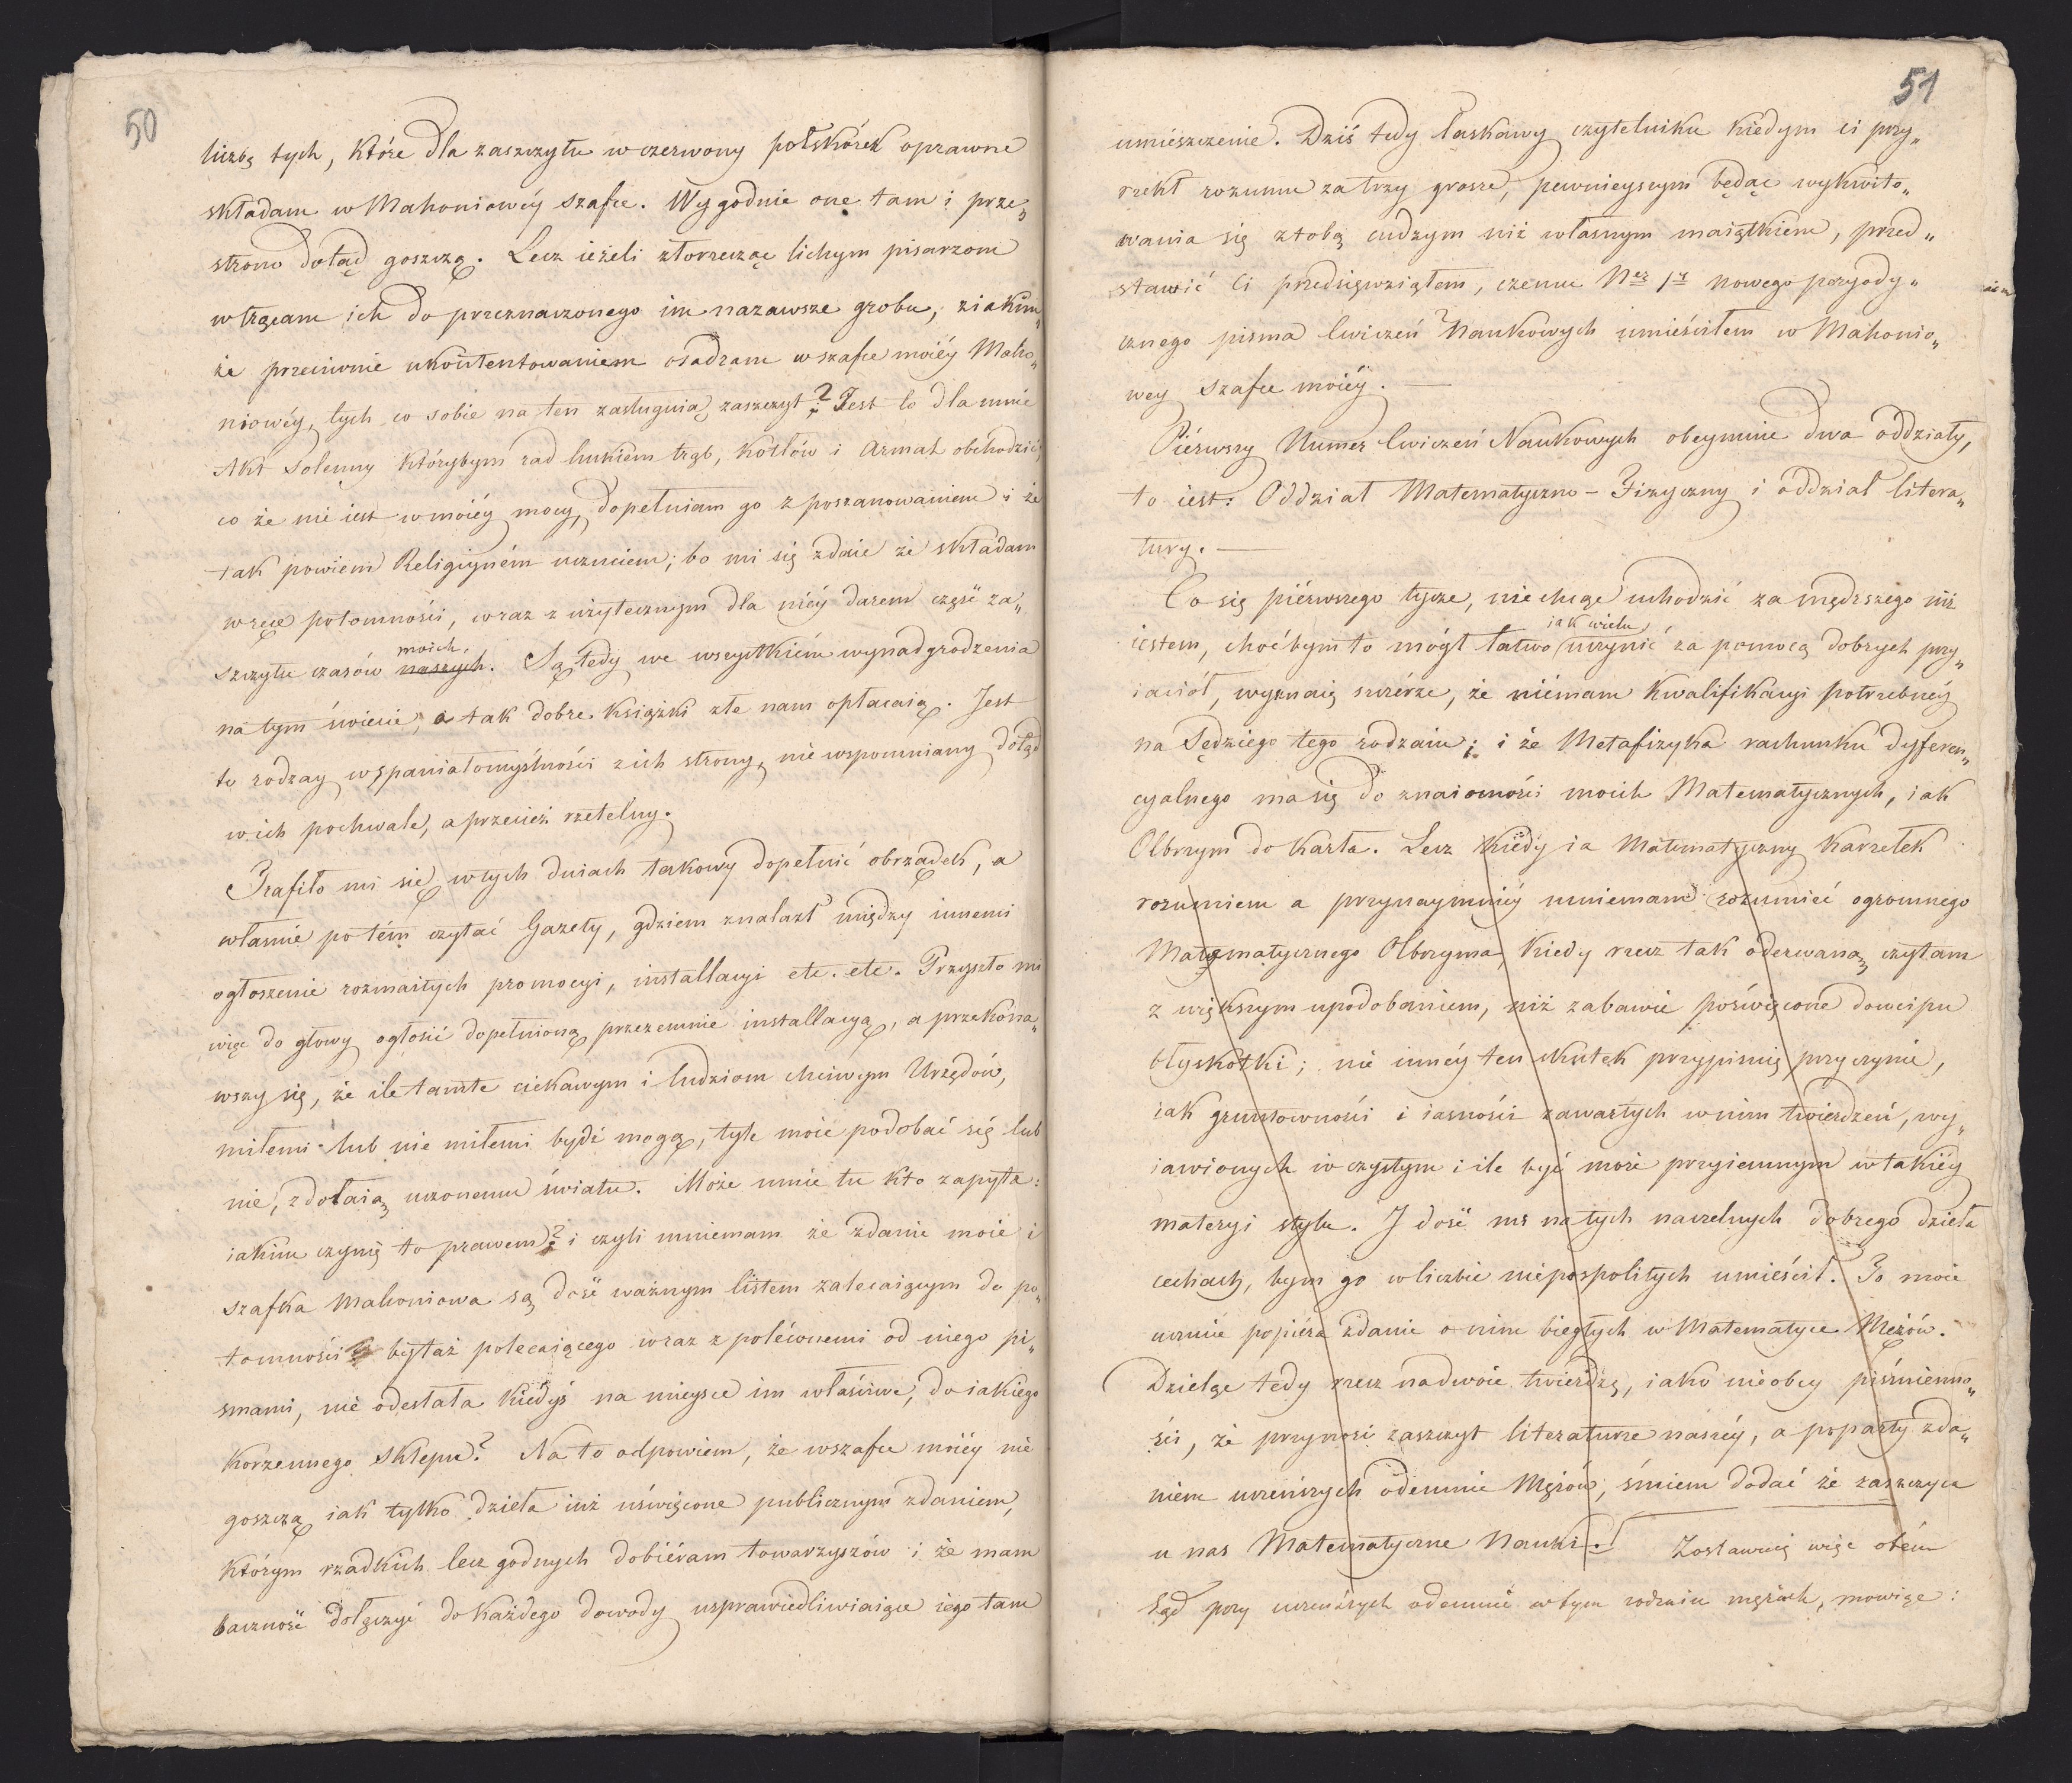 50
liczbę tych, które dla zaszczytu w czerwony półskórek oprawne
składam w Mahoniowéy szafce. Wygodnie one tam i prze„
strono dotąd goszczą. Lecz ieżeli złorzecząc lichym pisarzom
wtrącam ich do przeznaczonego im nazawsze grobu, ziakim„
że przeciwnie ukontentowaniem osadzam w szafce moiéy Maho„
niowéy, tych co sobie na ten zasługuią zaszczyt? Jest to dla mnie
Akt Solenny którybym rad hukiem trąb, kotłów i armat obchodzić,
co że nie iest w moiéy mocy, dopełniam go z poszanowaniem i że
tak powiem Religiyném uczuciem; bo mi się zdaie że składam
w ręce potomności, wraz z użytecznym dla niéy darem część za„
szczytu czasów naszych moich. Są tedy we wszystkiém wynadgrodzenia
na tym świecie, a tak dobre książki złe nam opłacaią. Jest
to rodzay wspaniałomyślności z ich strony, nie wspomniany dotąd
w ich pochwale, a przecież rzetelny.
Trafiło mi się w tych dniach takowy dopełnić obrządek, a
właśnie potém czytać Gazety, gdziem znalazł między innemi
ogłoszenie rozmaitych promocyi, installacyi etc. etc. Przyszło mi
więc do głowy ogłosić dopełnioną przezemnie installacyą, a przekona„
wszy się, że ile tamte ciekawym i ludziom chciwym Urzędów,
miłemi lub nie miłemi bydź mogą, tyle moie podobać się lub
nie, zdołaią uczonemu światu. Może mnie tu kto zapyta:
iakim czynię to prawem? i czyli mniemam że zdanie moie i
szafka Mahoniowa są dość ważnym listem zalecaiącym do po„
tomności bytaż polecaiącego wraz z poléconemi od niego pi„
smami, nie odesłała kiedyś na mieysce im właściwe, do iakiego
korzennego sklepu? Na to odpowiem, że w szafce moiéy nie
goszczą iak tylko dzieła iuż uświęcone publicznym zdaniem,
którym rzadkich lecz godnych dobiéram towarzyszów i że mam
baczność dołączyć do każdego dowody usprawiedliwiaiące iego tam
51
umieszczenie. Dziś tedy łaskawy czytelniku kiedym ci przy„
rzekł rozumu za trzy grosze, pewnieyszym będąc wykwito„
wania się z tobą cudzym niż własnym maiątkiem, przed„
stawić Ci przedsięwziąłem, czemu Ner 1r nowego peryody„
cznego pisma Cwiczeń Naukowych umieściłem w Mahonio„
wey szafce moiéy. —
Piérwszy Numer Cwiczeń Naukowych obeymuie dwa oddziały,
to iest: Oddział Matematyczno - Fizyczny i oddział litera„
tury. —
Co się piérwszego tycze, nie chcąc uchodzić za mędrszego niż
iestem, choćbym to mógł łatwo iak wielu uczynić za pomocą dobrych przy„
iaciół, wyznaię szczérze, że niémam kwalifikacyi potrzebnéy
na Sędziego tego rodzaiu; i że Metafizyka rachunku dyferen„
cyalnego ma się do znaiomości moich Matematycznych, iak
Olbrzym do karła. Lecz kiedy ia Matematyczny karzełek
rozumiem a przynaymniéy mniemam rozumieć ogromnego
Matematycznego Olbrzyma, kiedy rzecz tak oderwaną czytam
z większym upodobaniem, niż zabawie poświęcone dowcipu
błyskotki; nie innéy ten skutek przypisuię przyczynie,
iak gruntowności i iasności zawartych w nim twierdzeń, wy„
iawionych w czystym i ile być może przyiemnym w takiéy
materyi stylu. I dość mi na tych naczelnych dobrego dzieła
cechach, bym go w liczbie niepospolitych umieścił. To moie
uczucie popiéra zdanie o nim biegłych w Matematyce Mężów.
Dzieląc tedy rzecz nadwoie twierdzę, iako nieobcy piśmienno„
ści, że przynosi zaszczyt literaturze naszéy, a poparty zda„
niem uczeńszych odemnie Mężów, śmiem dodać że zaszczyca
u nas Matematyczne Nauki. Zostawuię więc otém
Sąd przy uczeńszych odemnie w tym rodzaiu mężach, mowiąc: